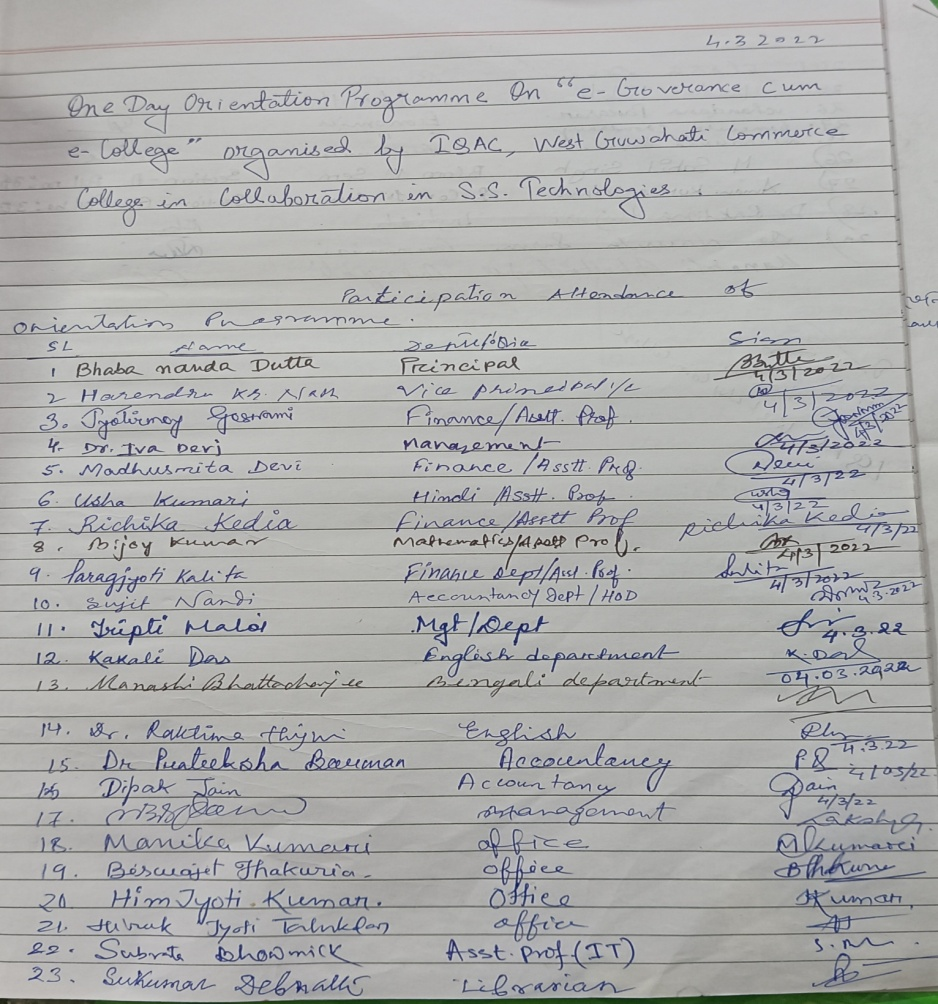 4.3 2022
One Day Orientation Programme On "e-Goverance cum
e-College" organised by IQAC, West Guwahati Commerce
College in Collaboration in S.S. Technologies.
Participation Attendance of
Orientation Programme.
SL Name Sign
1 Bhaba nanda Dutta Principal 4/3/2022
2 Harendra Kr. Nath Vice Principal i/c 4/3/2022
3. Jyotirmoy Goswami Finance/Asstt. Prof. 4/3/22
4. Dr. Iva Devi Management 4/3/2022
5. Madhusmita Devi Finance/Asstt. Prof. Devi 4/3/22
6. Usha Kumari Hindi Asstt. Prof. 4/3/22
7. Richika Kedia Finance/Asstt Prof Richika Kedia 4/3/22
8. Bijoy Kumar Mathematics/Asstt Prof. 4/3/2022
9. Paragjyoti Kalita Finance Dept/Asst. Prof. Kalita 4/3/2022
10. Sujit Nandi Accountancy Dept/HOD 4.3.2022
11. Tripti Maloi Mgt/Dept 4.3.22
12. Kakali Das English department K. Das 04.03.2022
13. Manashi Bhattacharjee Bengali department
14. Dr. Raktima English 4.3.22
15. Dr Prateeksha Barman Accountancy PB 4/03/22
16 Dipak Jain Accountancy Jain 4/3/22
17. Management
18. Manika Kumari office MKumari
19. Biswajet Thakuria. office
20. HimJyoti Kumar. Office Kumar.
21. Jyoti office
22. Subrata Bhowmick Asst. Prof (IT)
23. Sukumar Debnath Librarian